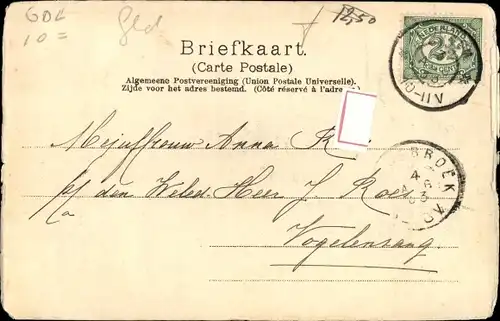 GDL
10 =
Gld
12,50
Briefkaart.
(Carte Postale)
Algemeene Postvereeniging (Union Postale Universelle).
Zijde voor het adres bestemd. (Côté réservé à l'adre
NEDERLAND
2½
CENT
10-11V
Mejuffrouw Anna R
p/ den Weled. Heer J. Roes
Vogelenzang
BROEK
4